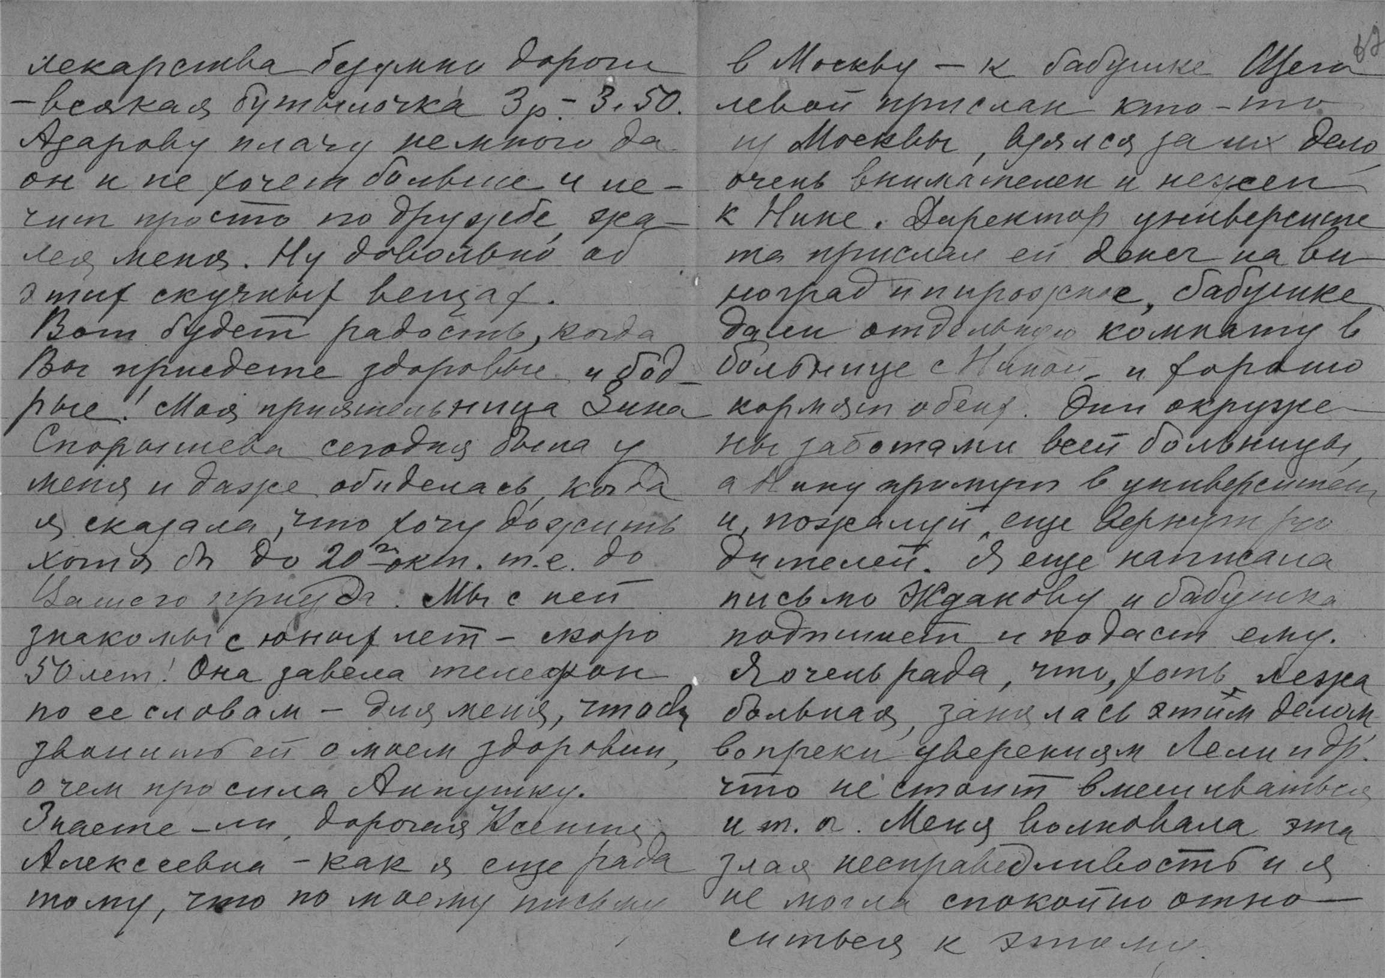 лекарства безумно дороги
– всякая бутылочка 3 р. – 3.50.
Азарову плачу немного да
он и не хочет больше и ле-
чит просто по дружбе, жа-
лея меня. Ну довольно об
этих скучных вещах.
Вот будет радость, когда
Вы приедете здоровые и бод-
рые! Моя приятельница Зина
Спорышева сегодня была у
меня и даже обиделась, когда
я сказала, что хочу дожить
хотя бы до 20го окт. т.е. до
Вашего приезда. Мы с ней
знакомы с юных лет – скоро
50 лет! Она завела телефон
по ее словам – для меня, чтобы
звонить ей о моем здоровии,
о чем просила Аннушку.
Знаете-ли, дорогая Ксения
Алексеевна – как я еще рада
тому, что по моему письму
67
в Москву – к бабушке Щего
левой прислан кто-то
из Москвы, взялся за их дело,
очень внимателен и нежен
к Нине. Директор университе
та прислал ей денег на ви
ноград и пирожное, бабушке
дали отдельную комнату в
больнице с Ниной и хорошо
кормят обеих. Они окруже-
ны заботами всей больницы,
а Нину примут в университет
и, пожалуй, еще вернут ро
дителей. Я еще написала
письмо Жданову и бабушка
подпишет и подаст ему.
Я очень рада, что, хоть лежа
больная, занялась этим делом
вопреки уверениям Лели и др.
что не стоит вмешиваться
и т. п. Меня волновала эта
злая несправедливость и я
не могла спокойно отно-
ситься к этому.